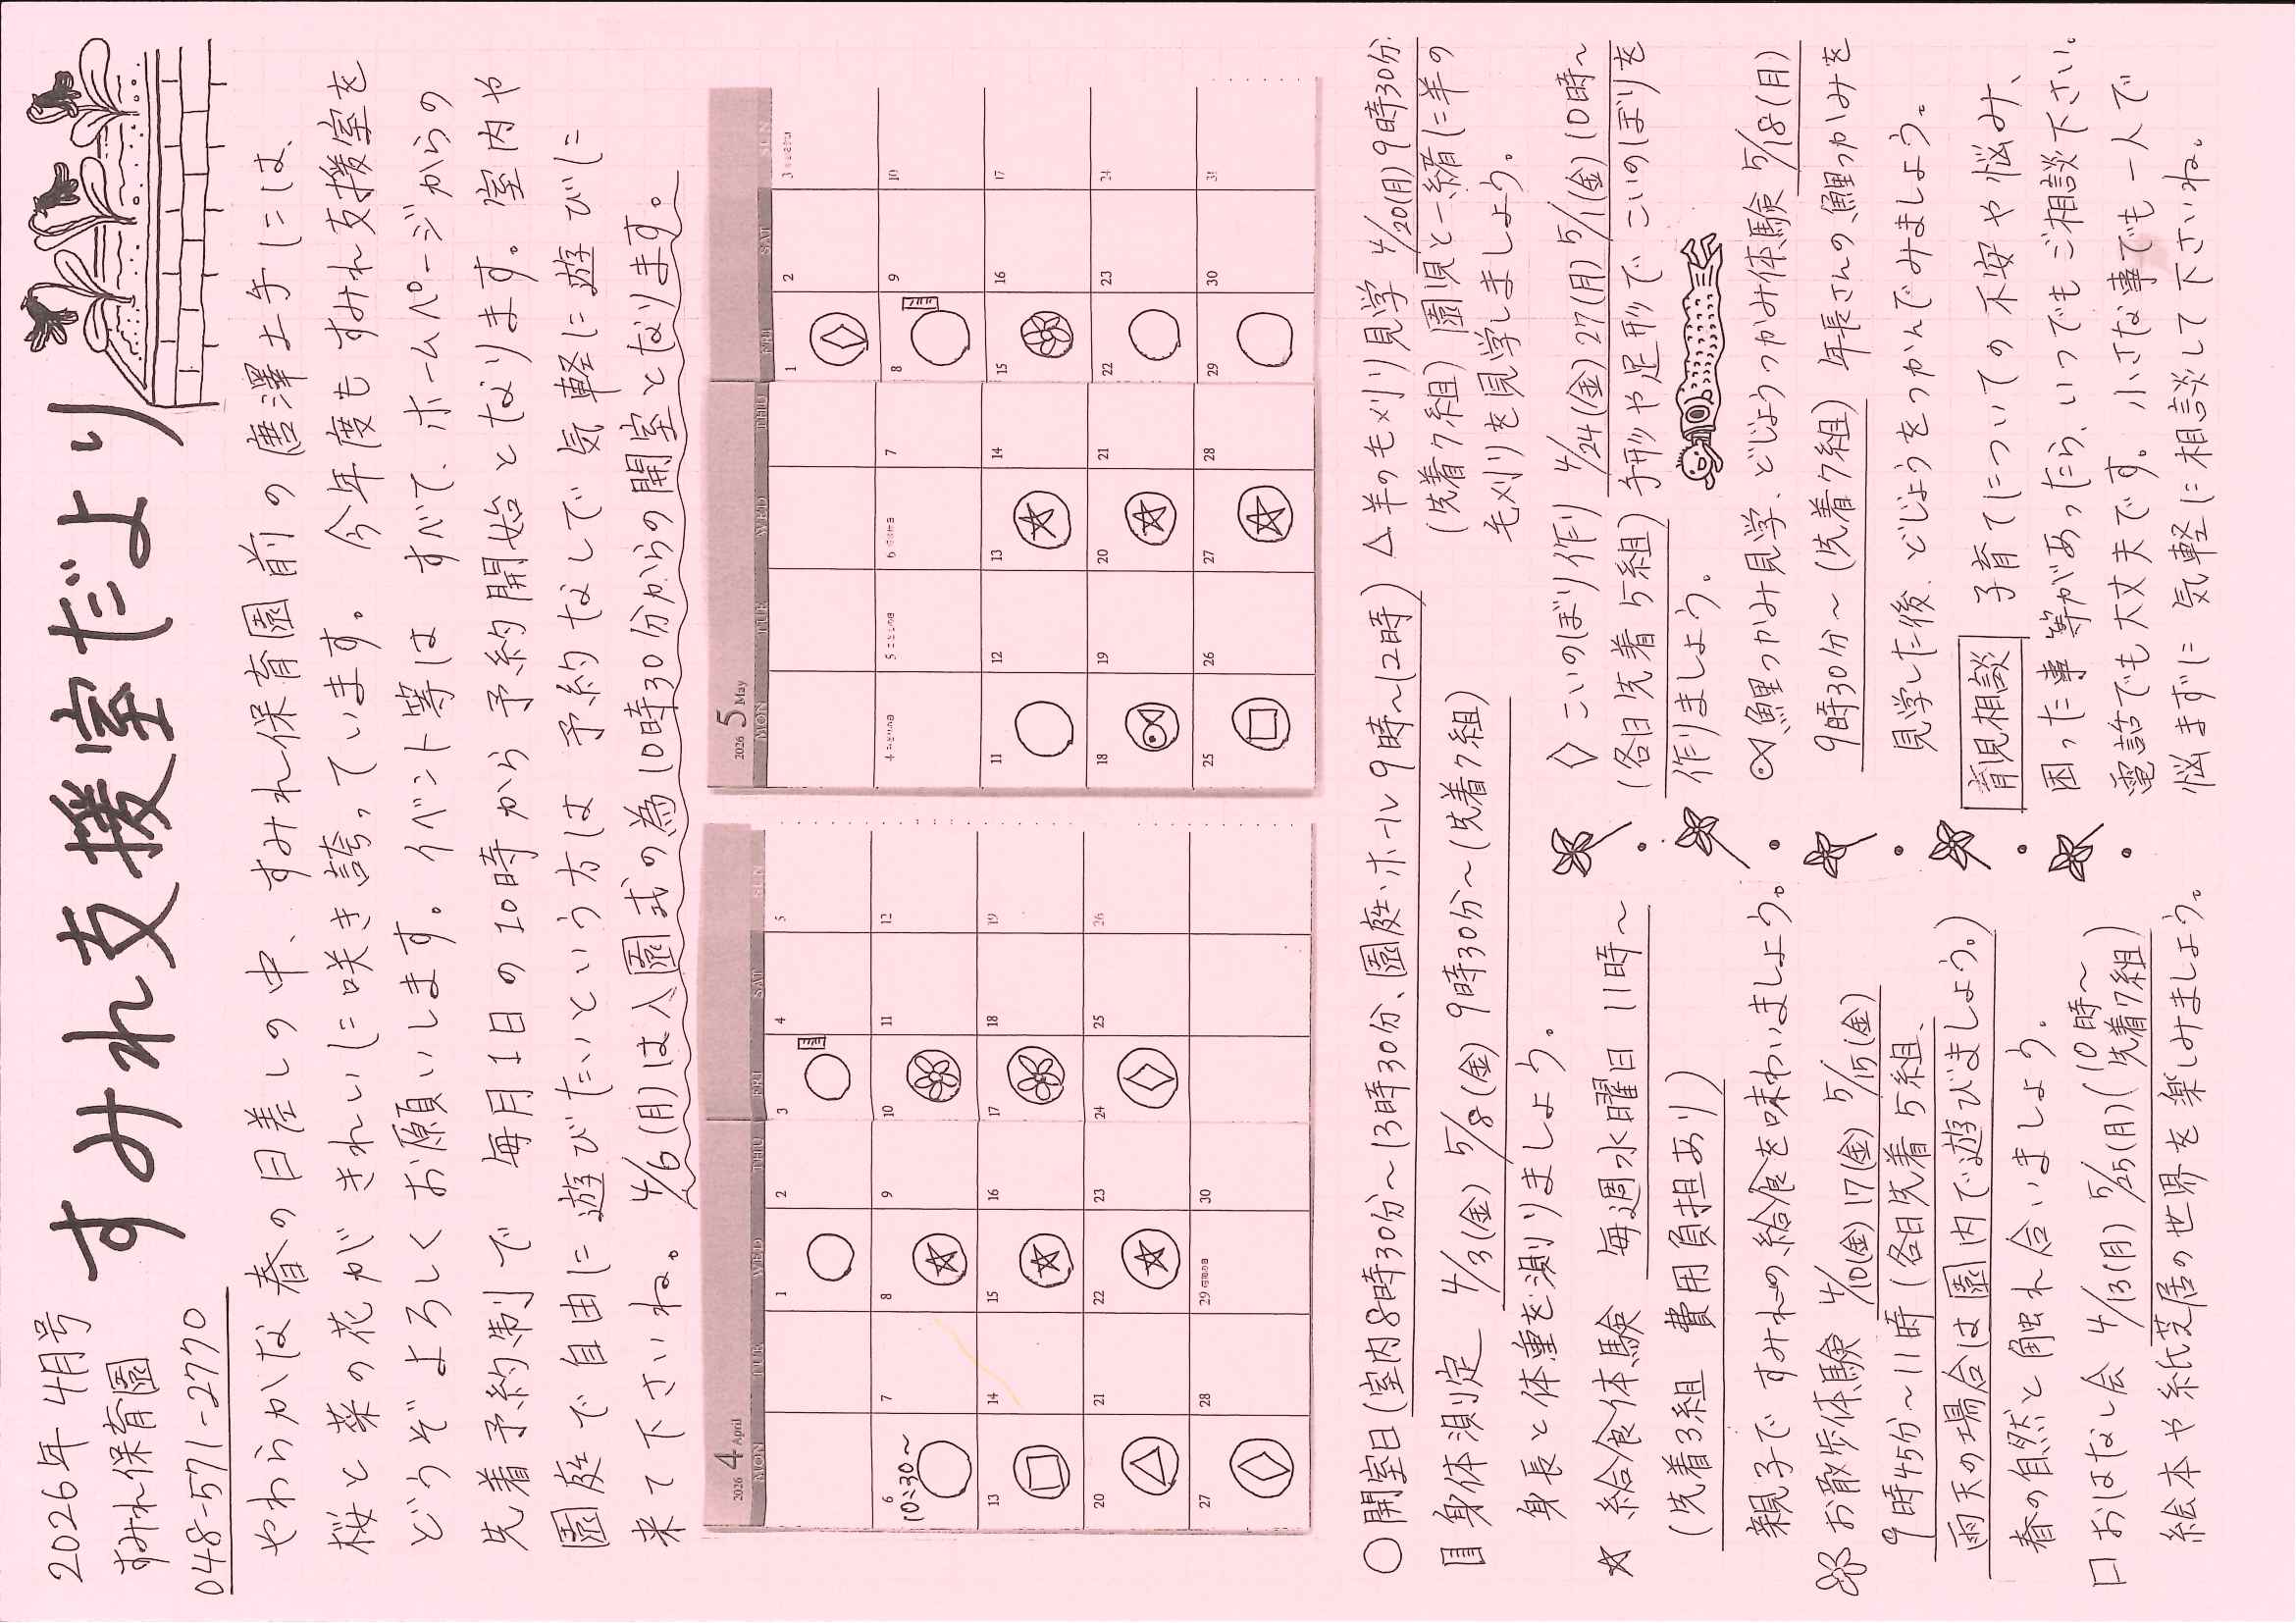 2026年 4月号
すみれ保育園
048-571-2770
すみれ支援室だより
やわらかな 春の日差しの中、すみれ保育園前の唐澤土手には、
桜と菜の花が きれいに咲き誇っています。今年度も すみれ支援室を
どうぞよろしくお願いします。イベント等は すべて、ホームページからの
先着予約制で 毎月1日の10時から 予約開始となります。室内や
園庭で自由に 遊びたいという方は 予約なしで 気軽に遊びに
来て下さいね。 4/6(月)は入園式の為10時30分からの開室となります。
2026 4 April
MON TUE WED THU FRI SAT SUN
1 2 3 4 5
6 7 8 9 10 11 12
10:30~
13 14 15 16 17 18 19
20 21 22 23 24 25 26
27 28 29 昭和の日 30
2026 5 May
MON TUE WED THU FRI SAT SUN
1 2 3 憲法記念日
4 みどりの日 5 こどもの日 6 振替休日 7 8 9 10
11 12 13 14 15 16 17
18 19 20 21 22 23 24
25 26 27 28 29 30 31
○開室日(室内8時30分~13時30分、園庭・ホール9時~12時)
身体測定 4/3(金) 5/8(金) 9時30分~(先着7組)
身長と体重を測りましょう。
☆ 給食体験 毎週水曜日 11時~
(先着3組 費用負担あり)
親子で すみれの給食を味わいましょう。
お散歩体験 4/10(金)17(金) 5/15(金)
9時45分~11時(各日先着5組、
雨天の場合は園内で遊びましょう。)
春の自然と触れ合いましょう。
□おはなし会 4/13(月) 5/25(月)(10時~
(先着7組)
絵本や紙芝居の世界を楽しみましょう。
△羊の毛刈り見学 4/20(月)9時30分~
(先着7組) 園児と一緒に羊の
毛刈りを見学しましょう。
◇こいのぼり作り 4/24(金)27(月)5/1(金)10時~
(各日先着5組) 手形や足形で こいのぼりを
作りましょう。
鯉つかみ見学、どじょうつかみ体験 5/18(月)
9時30分~(先着7組) 年長さんの、鯉つかみを
見学した後、どじょうをつかんでみましょう。
育児相談 子育てについての不安や悩み、
困った事等があったら、いつでもご相談下さい。
電話でも大丈夫です。小さな事でも一人で
悩まずに 気軽に相談して下さいね。